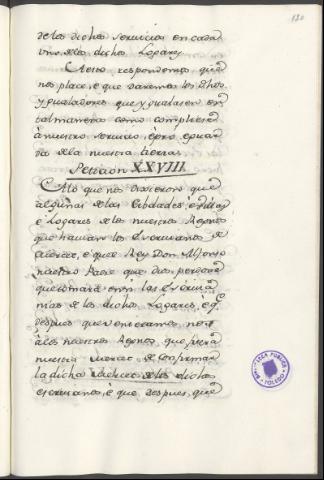 120
de los dichos servicios en cada
uno de los dichos Logares
A esto respondemos que
nos place, è que daremos los dhos
ygualadores que ygualasen en
tal manera como cumpliese
à nuestro servicio è pro è guar
da de la nuestra tierra
Peticion XXVIII.
A lo que nos dixeron que
algunas de las Cibdades, è Villas
è Logares de los nuestros Regnos
que havian los Escrivanos de
è que el Rey Don Alfonso
nuestro Padre que Dios perdone
que tomara en si las Escriva
nias de los dichos Logares, è q.e
despues que venieramos nos
à los nuestros Regnos, que fuera
nuestra merced de confirmar
la dicha merced de los dichos
escrivanos, è que despues, que
BIBLIOTECA PUBLICA
TOLEDO